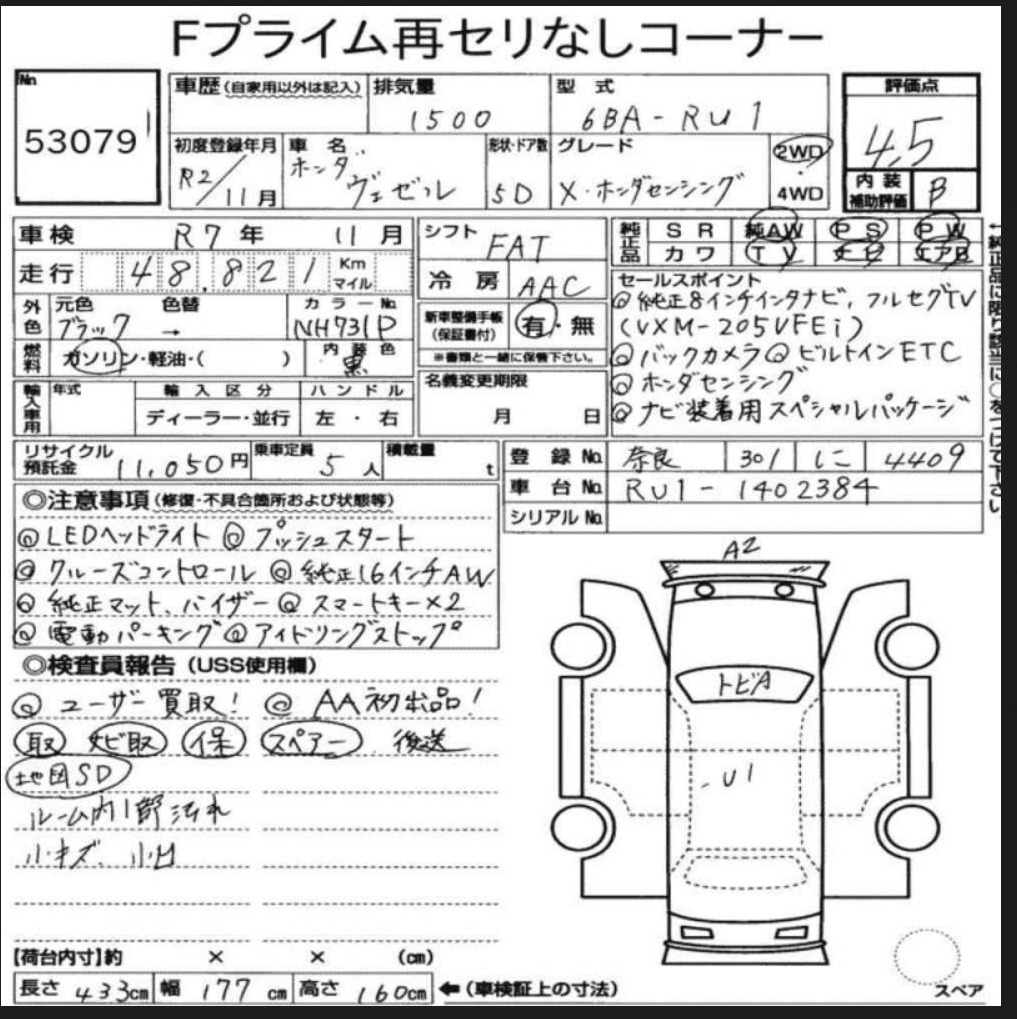 Fプライム再セリなしコーナー
No.
53079
車歴(自家用以外は記入)
排気量
1500
型 式
6BA-RU1
評価点
4.5
初度登録年月
R2/11月
車 名
ホンダ
ヴェゼル
形状・ドア数
5D
グレード
X・ホンダセンシング
2WD
・
4WD
内 装
補助評価
B
車検 R7年 11月
走行 48.821 Km マイル
シフト FAT
冷 房 AAC
純正品 SR 純AW PS PW
カワ TV ナビ エアB
←純正品に限り該当に○をつけて下さい
外色 元色 色替 カラーNo.
ブラック → NH731P
燃料 ガソリン・軽油・( ) 内装色
黒
新車整備手帳
(保証書付)
有・無
※書類と一緒に保管下さい。
セールスポイント
◎純正8インチインタナビ、フルセグTV
(VXM-205VFEi)
◎バックカメラ◎ビルトインETC
◎ホンダセンシング
◎ナビ装着用スペシャルパッケージ
輸入車用 年式 輸入区分 ハンドル
ディーラー・並行 左・右
名義変更期限
月 日
リサイクル
預託金 11,050円
乗車定員 5人
積載量 t
登録No. 奈良 301 に 4409
車台No. RU1-1402384
シリアルNo.
◎注意事項(修復・不具合箇所および状態等)
◎LEDヘッドライト ◎プッシュスタート
◎クルーズコントロール ◎純正16インチAW
◎純正マット、バイザー ◎スマートキー×2
◎電動パーキング ◎アイドリングストップ
◎検査員報告(USS使用欄)
◎ユーザー買取! ◎AA初出品!
取 ナビ取 保 スペアー 後送
地図SD
ルーム内1部汚れ
小キズ、小凹
A2
トビA
U1
【荷台内寸】約 × × (cm)
長さ 433cm 幅 177cm 高さ 160cm ←(車検証上の寸法)
スペア